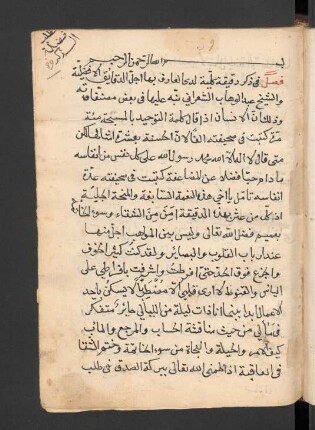 بسم الله الرحمن الرحيم
فصل في ذكر دقيقة علمية لدى العارف بها اجل الدقايق الافضلية
والشيخ عبد الوهاب الشعراني نبه عليها في بعض مصنفاته
وذلك ان الانسان اذا قال كلمة التوحيد بالسبحة مئة
مرة كتبت في صحيفته اذ الحسنة بعشرة امثالها لكن
متى قال لا اله الا الله محمد رسول الله على كل نفس من انفاسه
ما دام حيا فضلا عن المضاعفة كتبت في صحيفته عدة
انفاسه تامل يا اخي هذه النعمة السابغة والمنحة الجليلة
اذ كل من عثر بهذه الدقيقة امن من الشقاء وسوء الخاتمة
بعميم فضل الله تعالى وليس بين المواهب اجل منها
عند ارباب القلوب والبصاير ولقد كنت كثير الخوف
والجزع فوق الحد حتى افرطت واشرفت بافراطي على
الياس والقنوط لا ارى قلبي الا مضطربا لا يسكن باحد
الاعمال ابدا بينما انا ذات ليلة من الليالي حاير متفكر
في مآلي من حيث مناقشة الحساب والمرجع والمآب
كيف الامر والحيلة والنجاة من سوء الخاتمة وختم الشقا
في العاقبة اذ الهمني الله تعالى ببركة الصدق في طلب